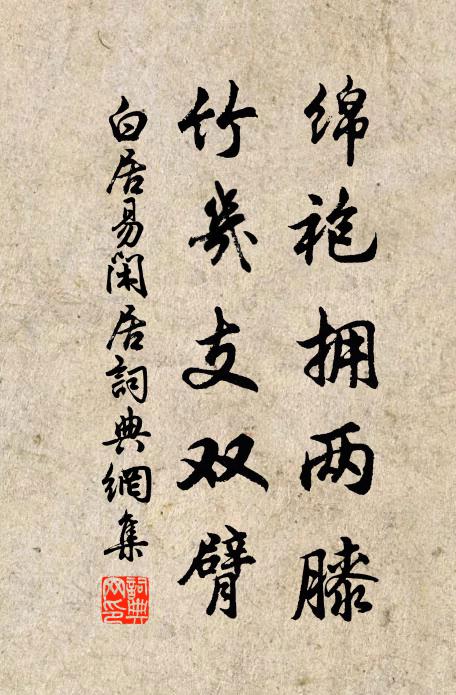 绵袍拥两膝
竹几支双臂
白居易闲居詞典網集
詞典网印